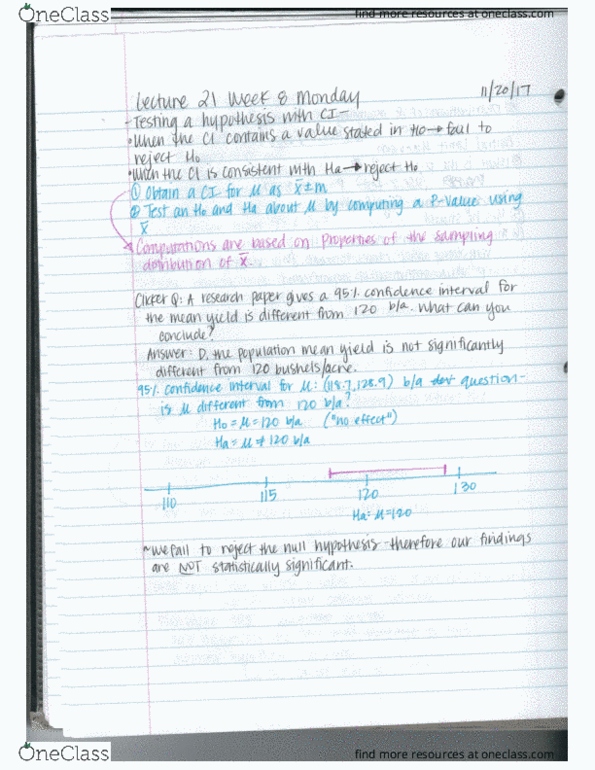 OneClass
find more resources at oneclass.com
Lecture 21 Week 8 Monday
11/20/17
- Testing a hypothesis with CI -
• When the CI contains a value stated in Ho → fail to
reject Ho
• When the CI is consistent with Ha → reject Ho
① Obtain a CI for μ as x̄ ± m
② Test an Ho and Ha about μ by computing a P-value using
x̄
Computations are based on Properties of the sampling
distribution of x̄
Clicker Q: A research paper gives a 95% confidence interval for
the mean yield is different from 120 b/a. What can you
conclude?
Answer: D, the population mean yield is not significantly
different from 120 bushels/acre.
95% confidence interval for μ: (118.7, 128.9) b/a question -
is μ different from 120 b/a?
Ho = μ = 120 b/a ("no effect")
Ha = μ ≠ 120 b/a
110 115 120 130
Ha = μ = 120
~ We fail to reject the null hypothesis - therefore our findings
are NOT statistically significant.
OneClass
find more resources at oneclass.com